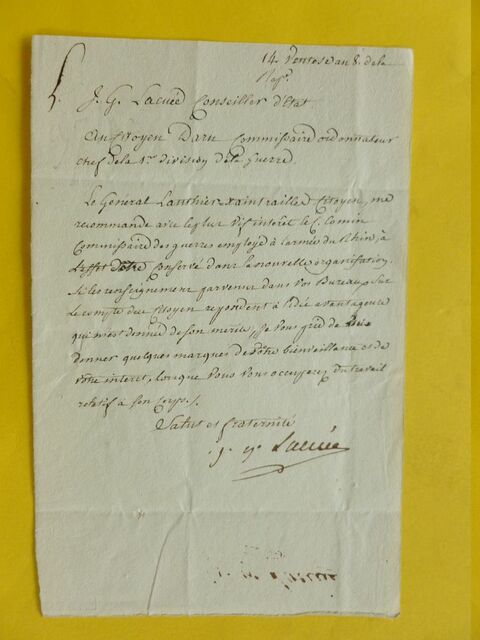 14 Ventose an 8. de la
Rep.
J. G. Lacuée Conseiller d'Etat
Au Citoyen Daru Commissaire ordonnateur
chef de la 1re division de la Guerre.
Le Général Lauthier Xaintrailles Citoyen, me
recommande avec le plus vif interet le C. Comin
Commissaire des guerres employé à l'armée du Rhin, à
l'effet d'être conservé dans la nouvelle organisation.
Si les renseignemens parvenus dans vos Bureaux sur
le compte du Citoyen repondent à l'idée avantageuse
qui m'est donnée de son merite, je vous prie de lui
donner quelques marques de votre bienveillance et de
votre interet, lorsque vous vous occuperez du travail
relatif à son Corps./.
Salut et fraternité
J. G. Lacuée